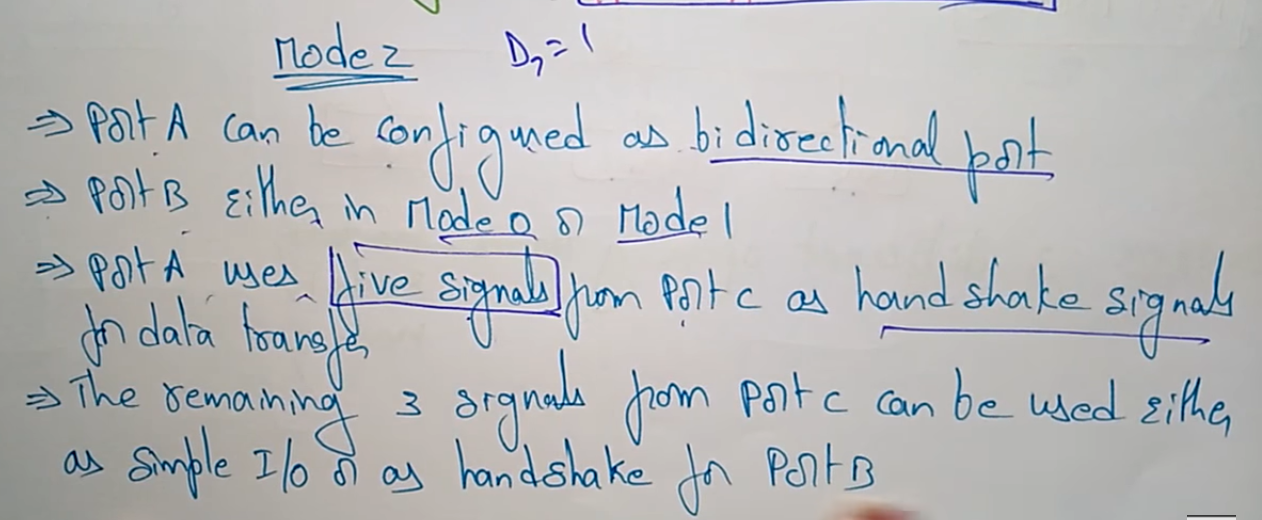 Mode 2 D7 = 1
⇒ Port A can be configured as bidirectional port
⇒ Port B Either in Mode 0 or Mode 1
⇒ Port A uses five signals from Port C as handshake signals
for data transfer
⇒ The remaining 3 signals from Port C can be used either
as simple I/o or as handshake for Port B